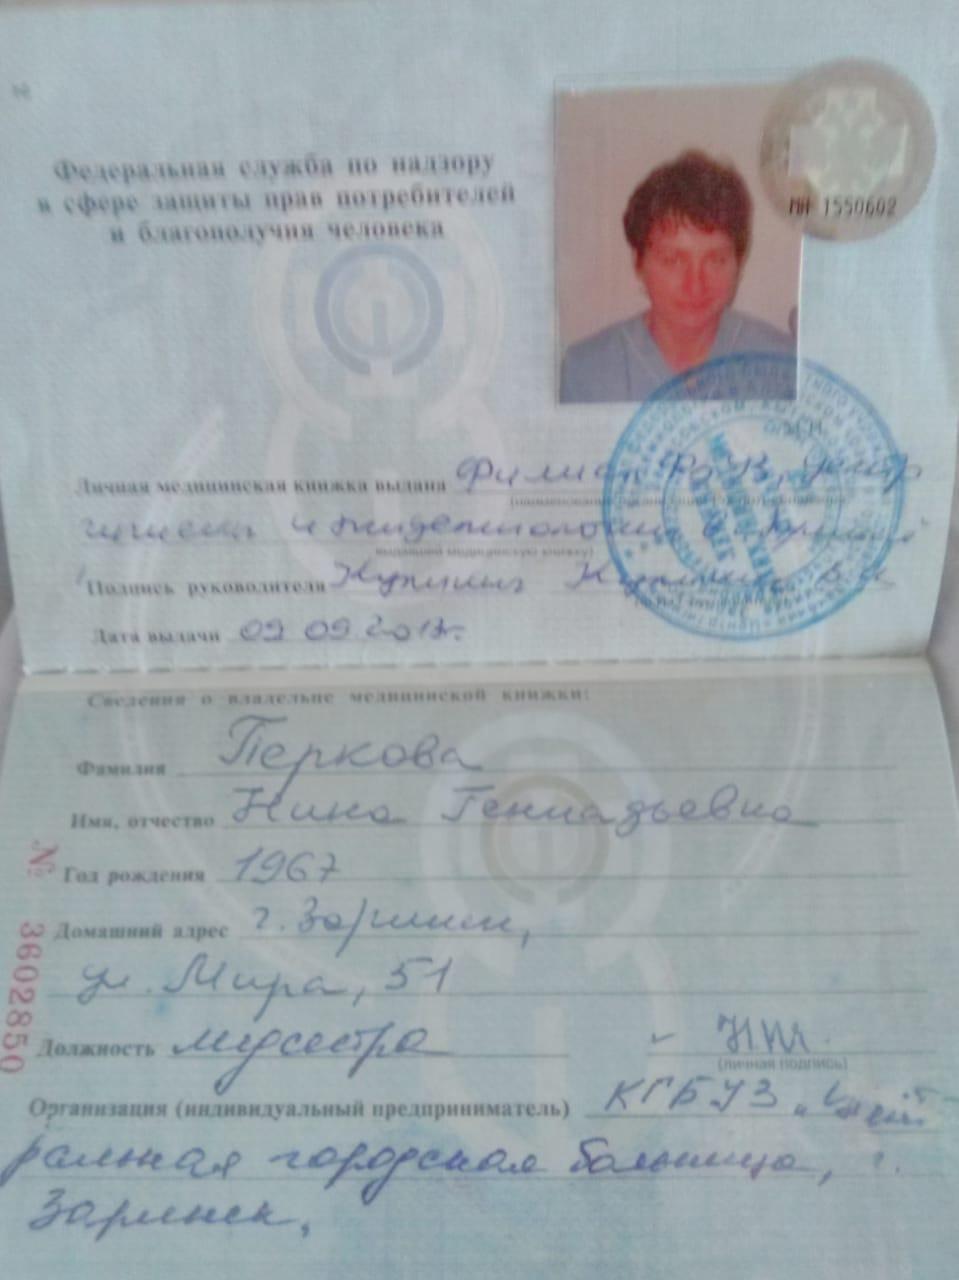 Федеральная служба по надзору
в сфере защиты прав потребителей
и благополучия человека
МИ 1550602
Личная медицинская книжка выдана Филиал ФБУЗ, Центр
гигиены и эпидемиологии в
выдавшей медицинскую книжку)
Подпись руководителя
Дата выдачи 09 09.2013г.
Сведения о владельце медицинской книжки:
Фамилия Перкова
Имя, отчество Нина Геннадьевна
Год рождения 1967
Домашний адрес г. Заринск,
ул. Мира, 51
Должность медсестра
(личная подпись)
Организация (индивидуальный предприниматель) КГБУЗ "Цент
ральная городская больница, г.
Заринск,
№ 3602850